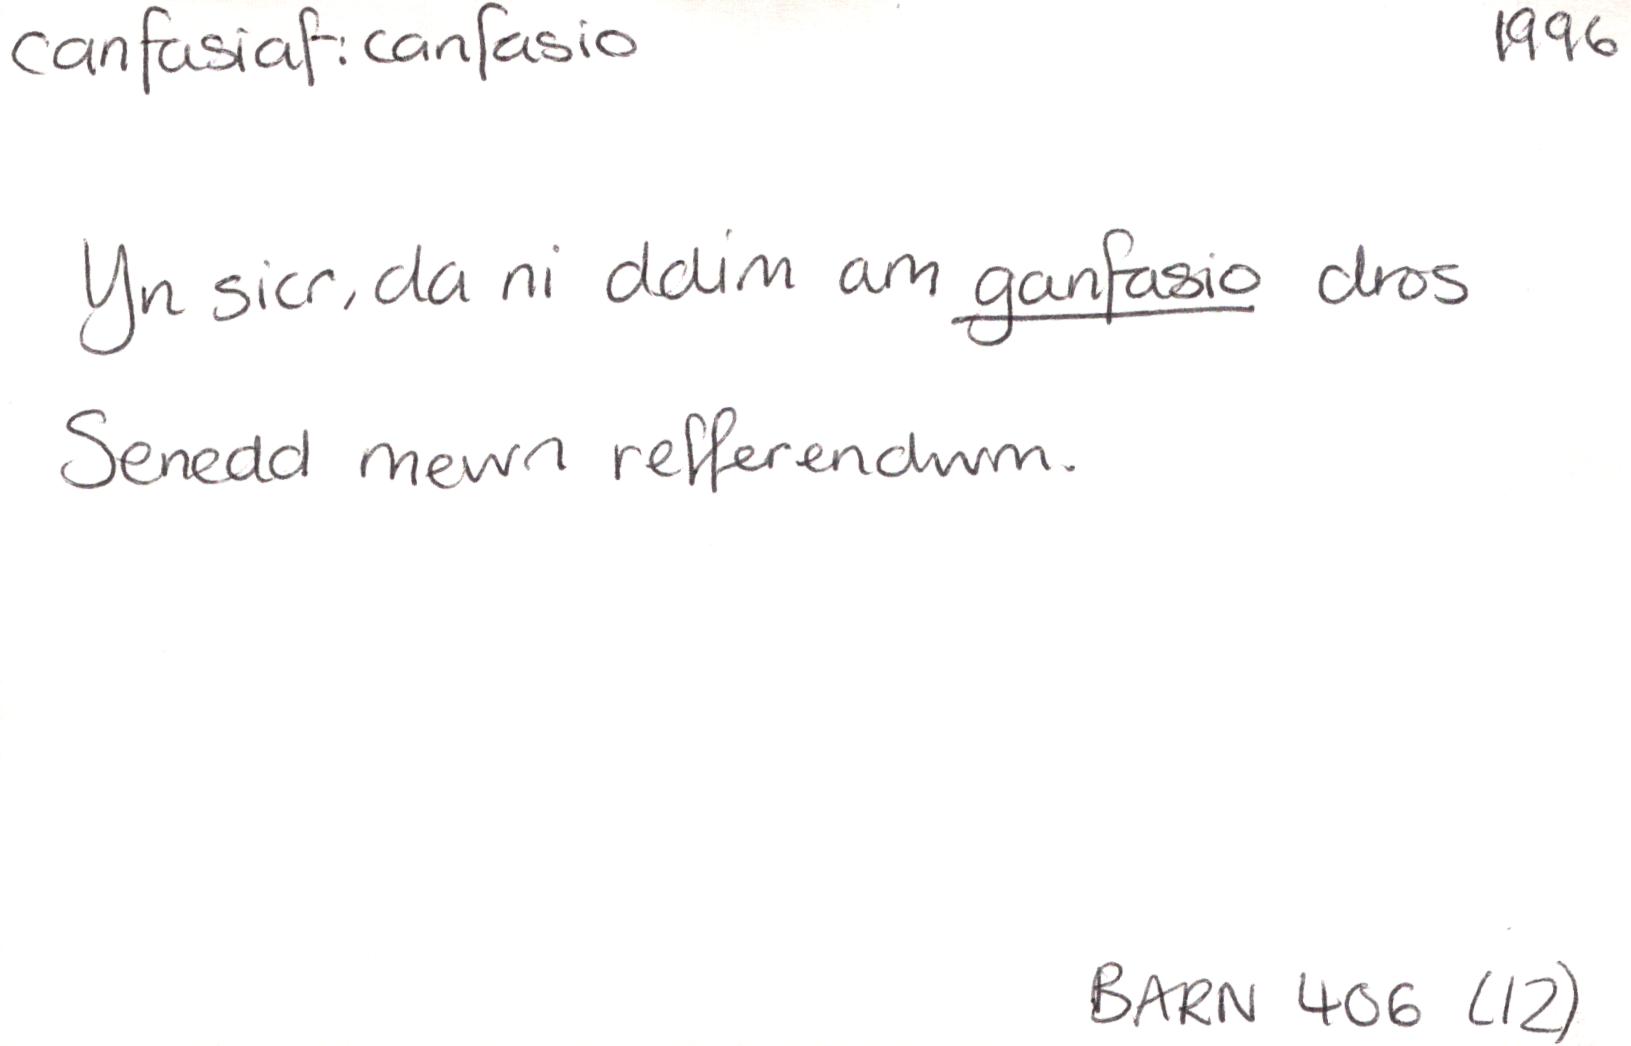 canfasiaf: canfasio 1996
Yn sicr, da ni ddim am ganfasio dros
Senedd mewn refferendwm.
BARN 406 (12)